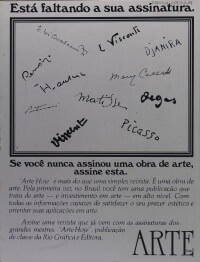 Está faltando a sua assinatura.
E. di Cavalcanti
L. Visconti
Djanira
Renoir
Manabu
Mary Cassatt
Matisse
Degas
Vincent
Picasso
Se você nunca assinou uma obra de arte,
assine esta.
"Arte Hoje" é mais do que uma simples revista. É uma obra de
arte. Pela primeira vez, no Brasil você tem uma publicação que
trata de arte — e investimento em arte — em alto nível. Com
todas as informações capazes de satisfazer o seu prazer estético e
orientar suas aplicações em arte.
Assine uma revista que já vem com as assinaturas dos
grandes mestres. "Arte Hoje", publicação
de classe da Rio Gráfica e Editora.
ARTE